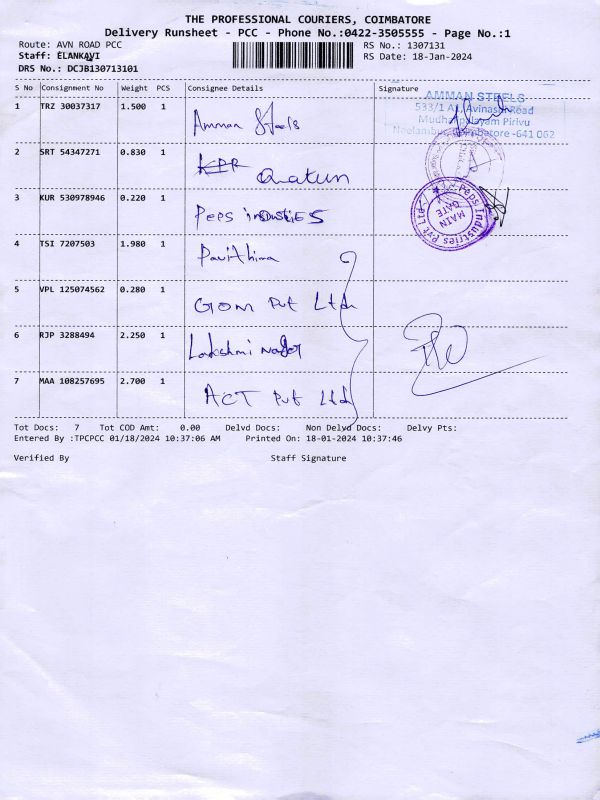 THE PROFESSIONAL COURIERS, COIMBATORE
Delivery Runsheet - PCC - Phone No.:0422-3505555 - Page No.:1
Route: AVN ROAD PCC RS No.: 1307131
Staff: ELANKAVI RS Date: 18-Jan-2024
DRS No.: DCJB130713101
S No Consignment No Weight PCS Consignee Details Signature
1 TRZ 30037317 1.500 1 Amman Steels
AMMAN STEELS
533/1 A1, Avinashi Road
Mudhalipalayam Pirivu
Neelambur, Coimbatore -641 062
2 SRT 54347271 0.830 1 KPR
3 KUR 530978946 0.220 1 Peps industies
Peps Industries Pvt Ltd
MAIN GATE
4 TSI 7207503 1.980 1
5 VPL 125074562 0.280 1 GOM Pvt Ltd
6 RJP 3288494 2.250 1 Lakshmi
7 MAA 108257695 2.700 1 ACT Pvt Ltd
Tot Docs: 7 Tot COD Amt: 0.00 Delvd Docs: Non Delvd Docs: Delvy Pts:
Entered By :TPCPCC 01/18/2024 10:37:06 AM Printed On: 18-01-2024 10:37:46
Verified By Staff Signature